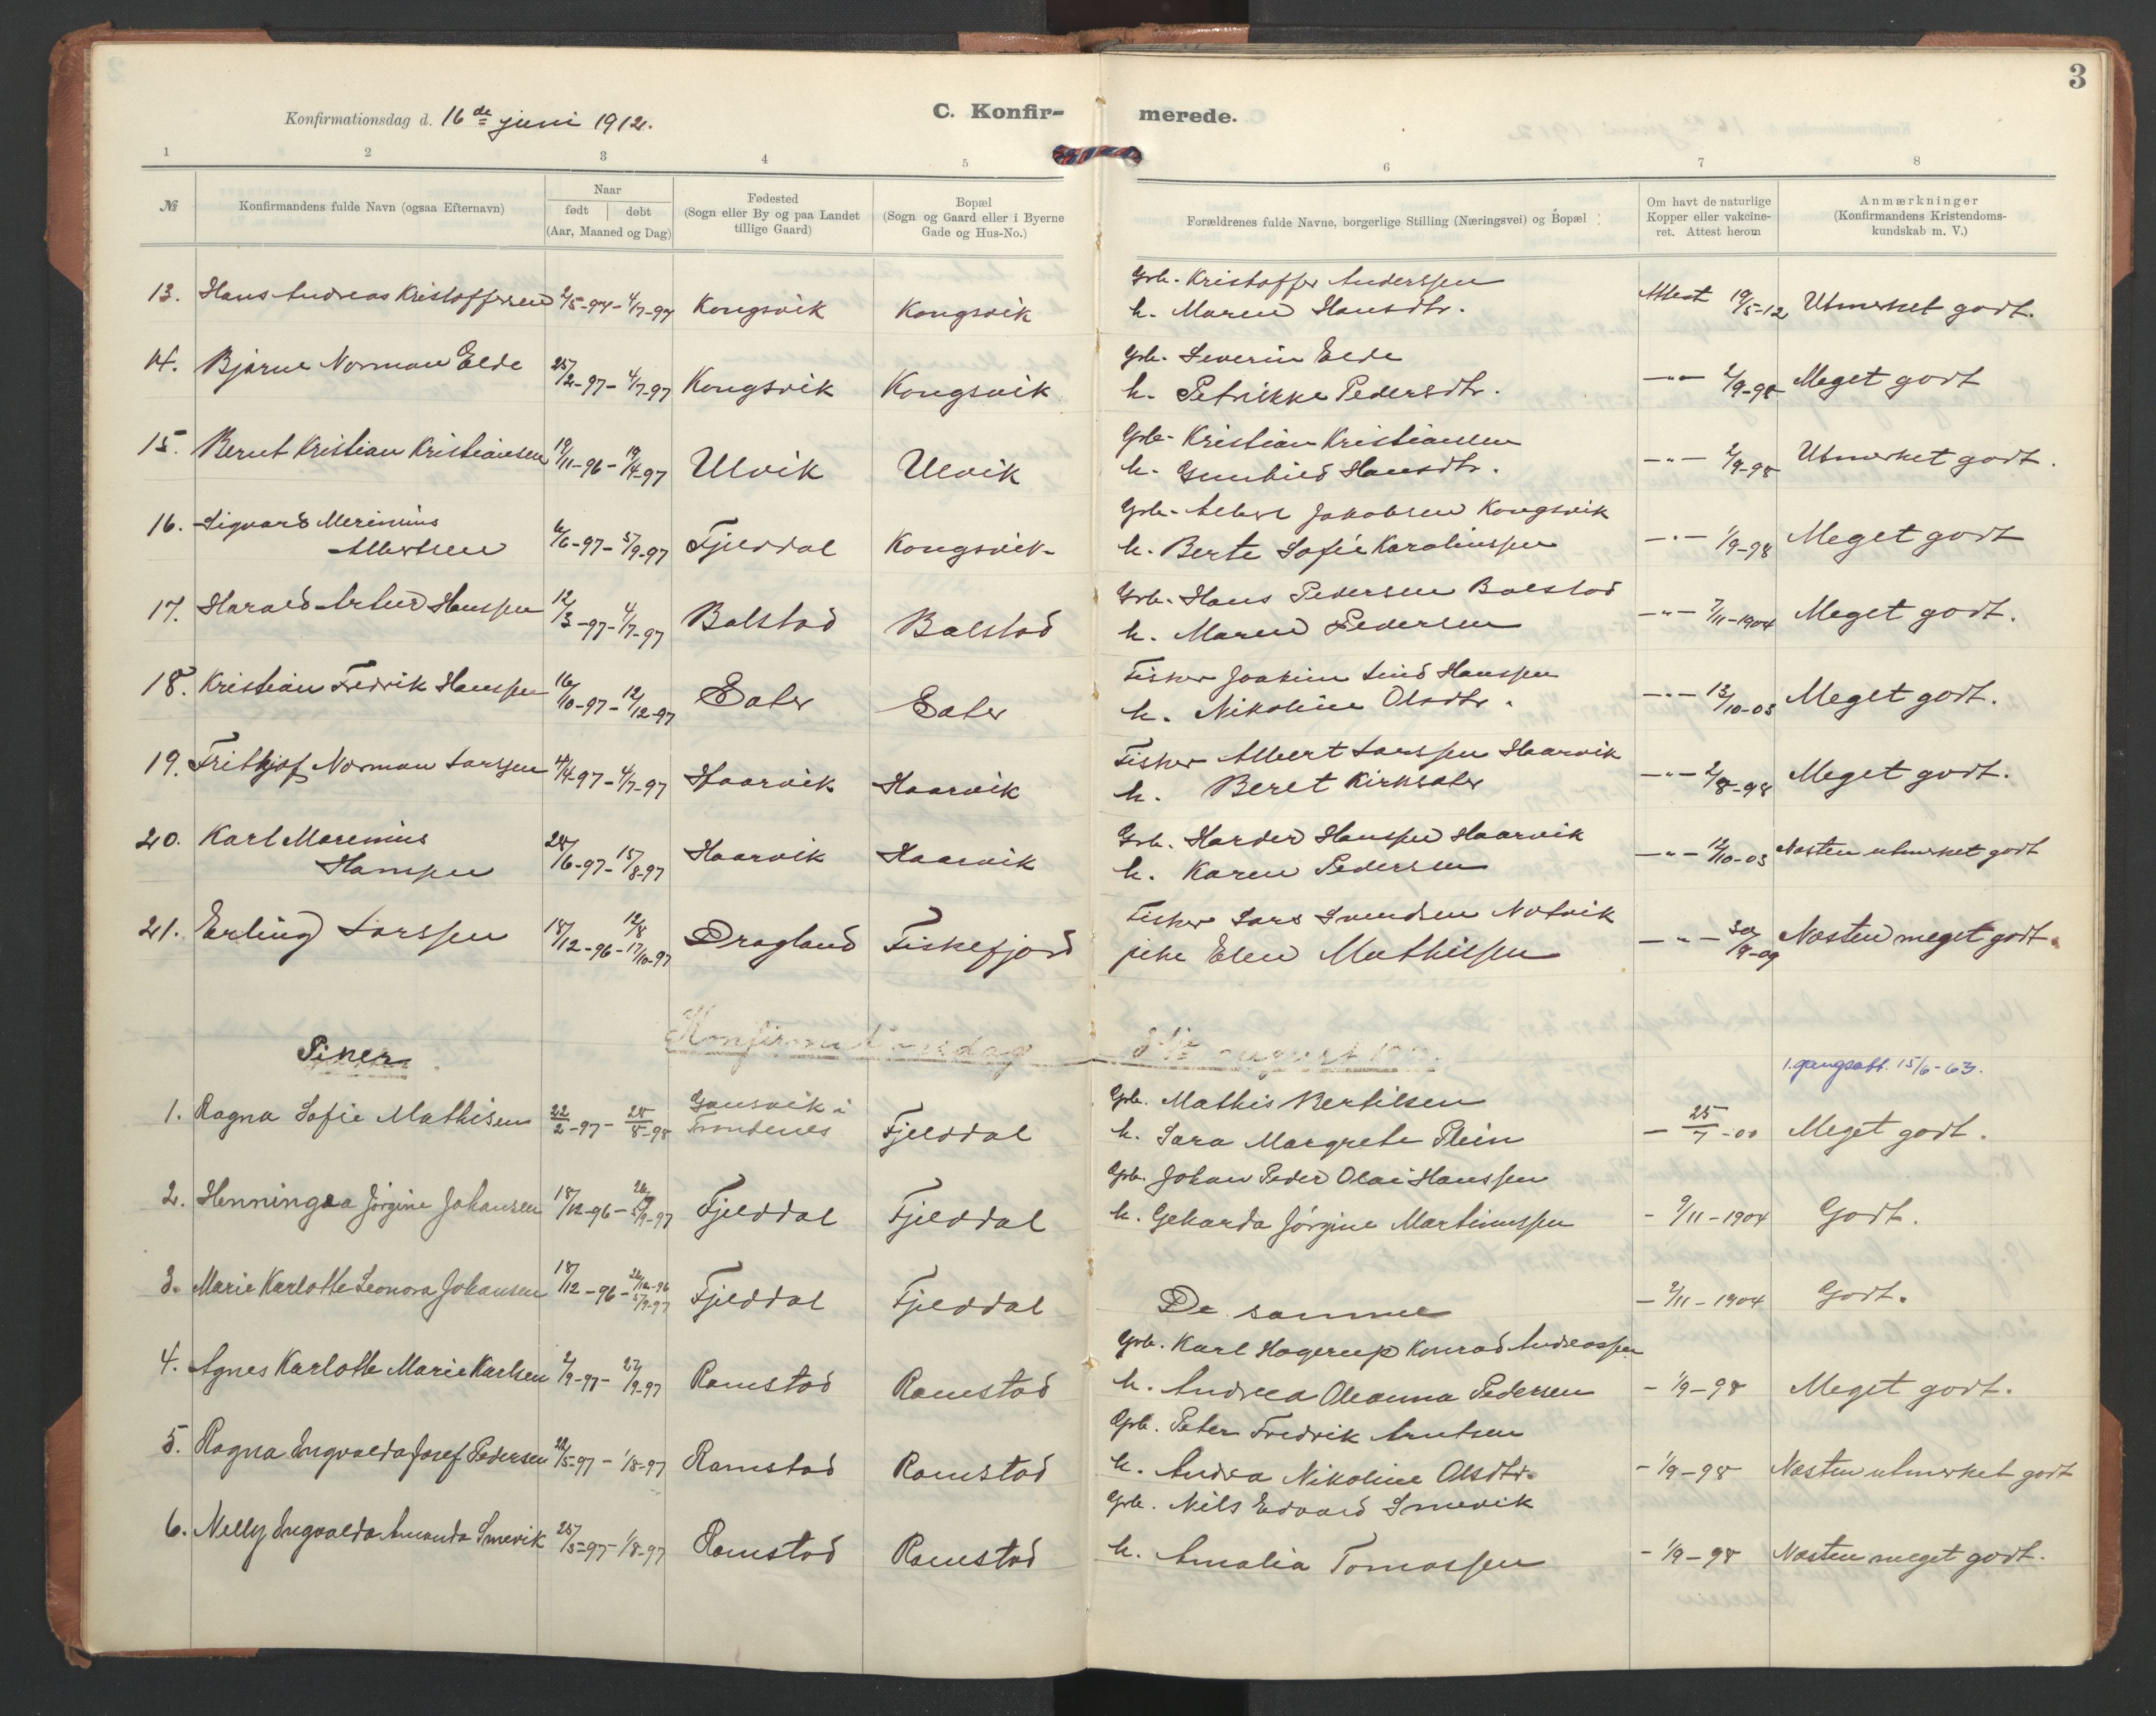 3
Konfirmationsdag d. 16de juni 1912.
C. Konfirmerede.
1 2 3 4 5 6 7 8
№
Konfirmandens fulde Navn (ogsaa Efternavn)
Naar
født | døbt
(Aar, Maaned og Dag)
Fødested
(Sogn eller By og paa Landet
tillige Gaard)
Bopæl
(Sogn og Gaard eller i Byerne
Gade og Hus-No.)
Forældrenes fulde Navne, borgerlige Stilling (Næringsvei) og Bopæl
Om havt de naturlige
Kopper eller vakcine-
ret. Attest herom
Anmærkninger
(Konfirmandens Kristendoms-
kundskab m. V.)
Grb. Kristoffer Anderssen
13. Hans Andreas Kristoffersen 2/5-97 - 4/7-97 Kongsvik Kongsvik h. Maren Hansdtr. Attest 19/5-12 Utmerket godt.
Grb. Severin Elde
14. Bjarne Norman Elde 25/2-97 - 4/7-97 Kongsvik Kongsvik h. Petrikke Pedersdtr. —"— 2/9-98 Meget godt
Grb. Kristian Kristiansen
15. Bernt Kristian Kristiansen 19/11-96 - 19/4-97 Ulvik Ulvik h. Gunhild Hansdtr. —"— 2/9-98 Utmerket godt.
Grb. Albert Jakobsen Kongsvik
16. Sigvard Merinius
Albertsen 6/6-97 - 5/9-97 Fjelddal Kongsvik h. Berte Sofie Karolinssen —"— 1/9-98 Meget godt
Grb. Hans Pedersen Balstad
17. Harald Artur Hanssen 12/3-97 - 4/7-97 Balstad Balstad h. Maren Pedersen —"— 7/11-1904 Meget godt.
Fisker Joakim Lind Hanssen
18. Kristian Fredrik Hanssen 16/10-97 - 12/12-97 Sater Sater h. Nikoline Olsdtr. —"— 12/10-03 Meget godt.
Fisker Albert Larssen Haarvik
19. Frithjof Norman Larssen 4/4-97 - 4/7-97 Haarvik Haarvik h. Beret Kirksater —"— 2/8-98 Meget godt.
Grb. Harder Hanssen Haarvik
20. Karl Marenius
Hanssen 28/6-97 - 15/8-97 Haarvik Haarvik h. Karen Pedersen —"— 12/10-03 Næsten utmerket godt
Fisker Lars Svendsen Notvik
21. Erling Larssen 18/12-96 - 12/8 17/10-97 Dragland Fiskefjord pike Elen Mathissen —"— 30/9-09 Næsten meget godt.
Konfirmationsdag august
Piker
1. gangsatt. 15/6-63.
Grb. Mathis Bertilsen
1. Ragna Sofie Mathisen 22/2-97 - 28/8-98 Gausvik i
Trondenes Fjelddal h. Sara Margrete Plein — 25/7-00 Meget godt.
Grb. Johan Peder Olai Hanssen
2. Henningea Jørgine Johansen 18/12-96 - 5/9-97 Fjelddal Fjelddal h. Geharda Jørgine Martinussen - 9/11-1904 Godt.
3. Marie Karlotte Leonora Johansen 18/12-96 - 26/12-96 5/9-97 Fjelddal Fjelddal De samme - 9/11-1904 Godt.
Grb. Karl Hagerup Konrad Andreassen
4. Agnes Karlotte Marie Karlsen 2/9-97 - 27/9-97 Ramstad Ramstad h. Andrea Oleanna Pedersen - 1/9-98 Meget godt.
Grb. Peter Fredrik Arntsen
5. Ragna Ingvalda Josef Pedersen 22/5-97 - 1/8-97 Ramstad Ramstad h. Andrea Nikoline Olsdtr. - 1/9-98 Næsten utmerket godt
Grb. Nils Edvard Smevik
6. Nelly Ingvalda Amanda Smevik 25/5-97 - 1/8-97 Ramstad Ramstad h. Amalia Tomassen - 1/9-98 Næsten meget godt.